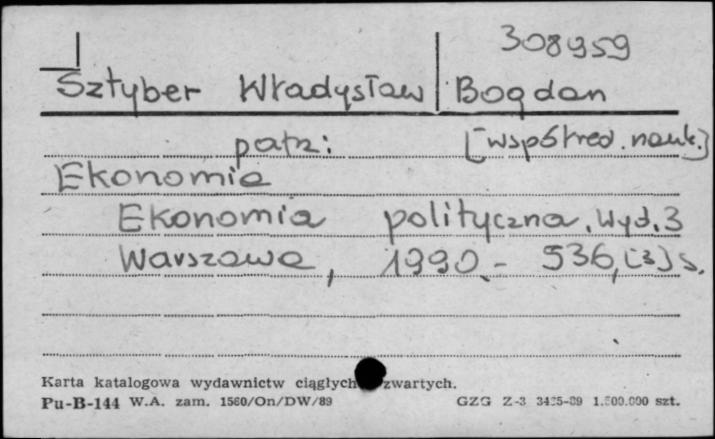 308959
Sztyber Władysław Bogdan
patrz: [współred. nauk.]
Ekonomia
Ekonomia polityczna. Wyd. 3
Warszawa, 1990. - 536, [3] s.
Karta katalogowa wydawnictw ciągłych zwartych.
Pu-B-144 W.A. zam. 1560/On/DW/89 GZG Z-3 3425-89 1.500.000 szt.